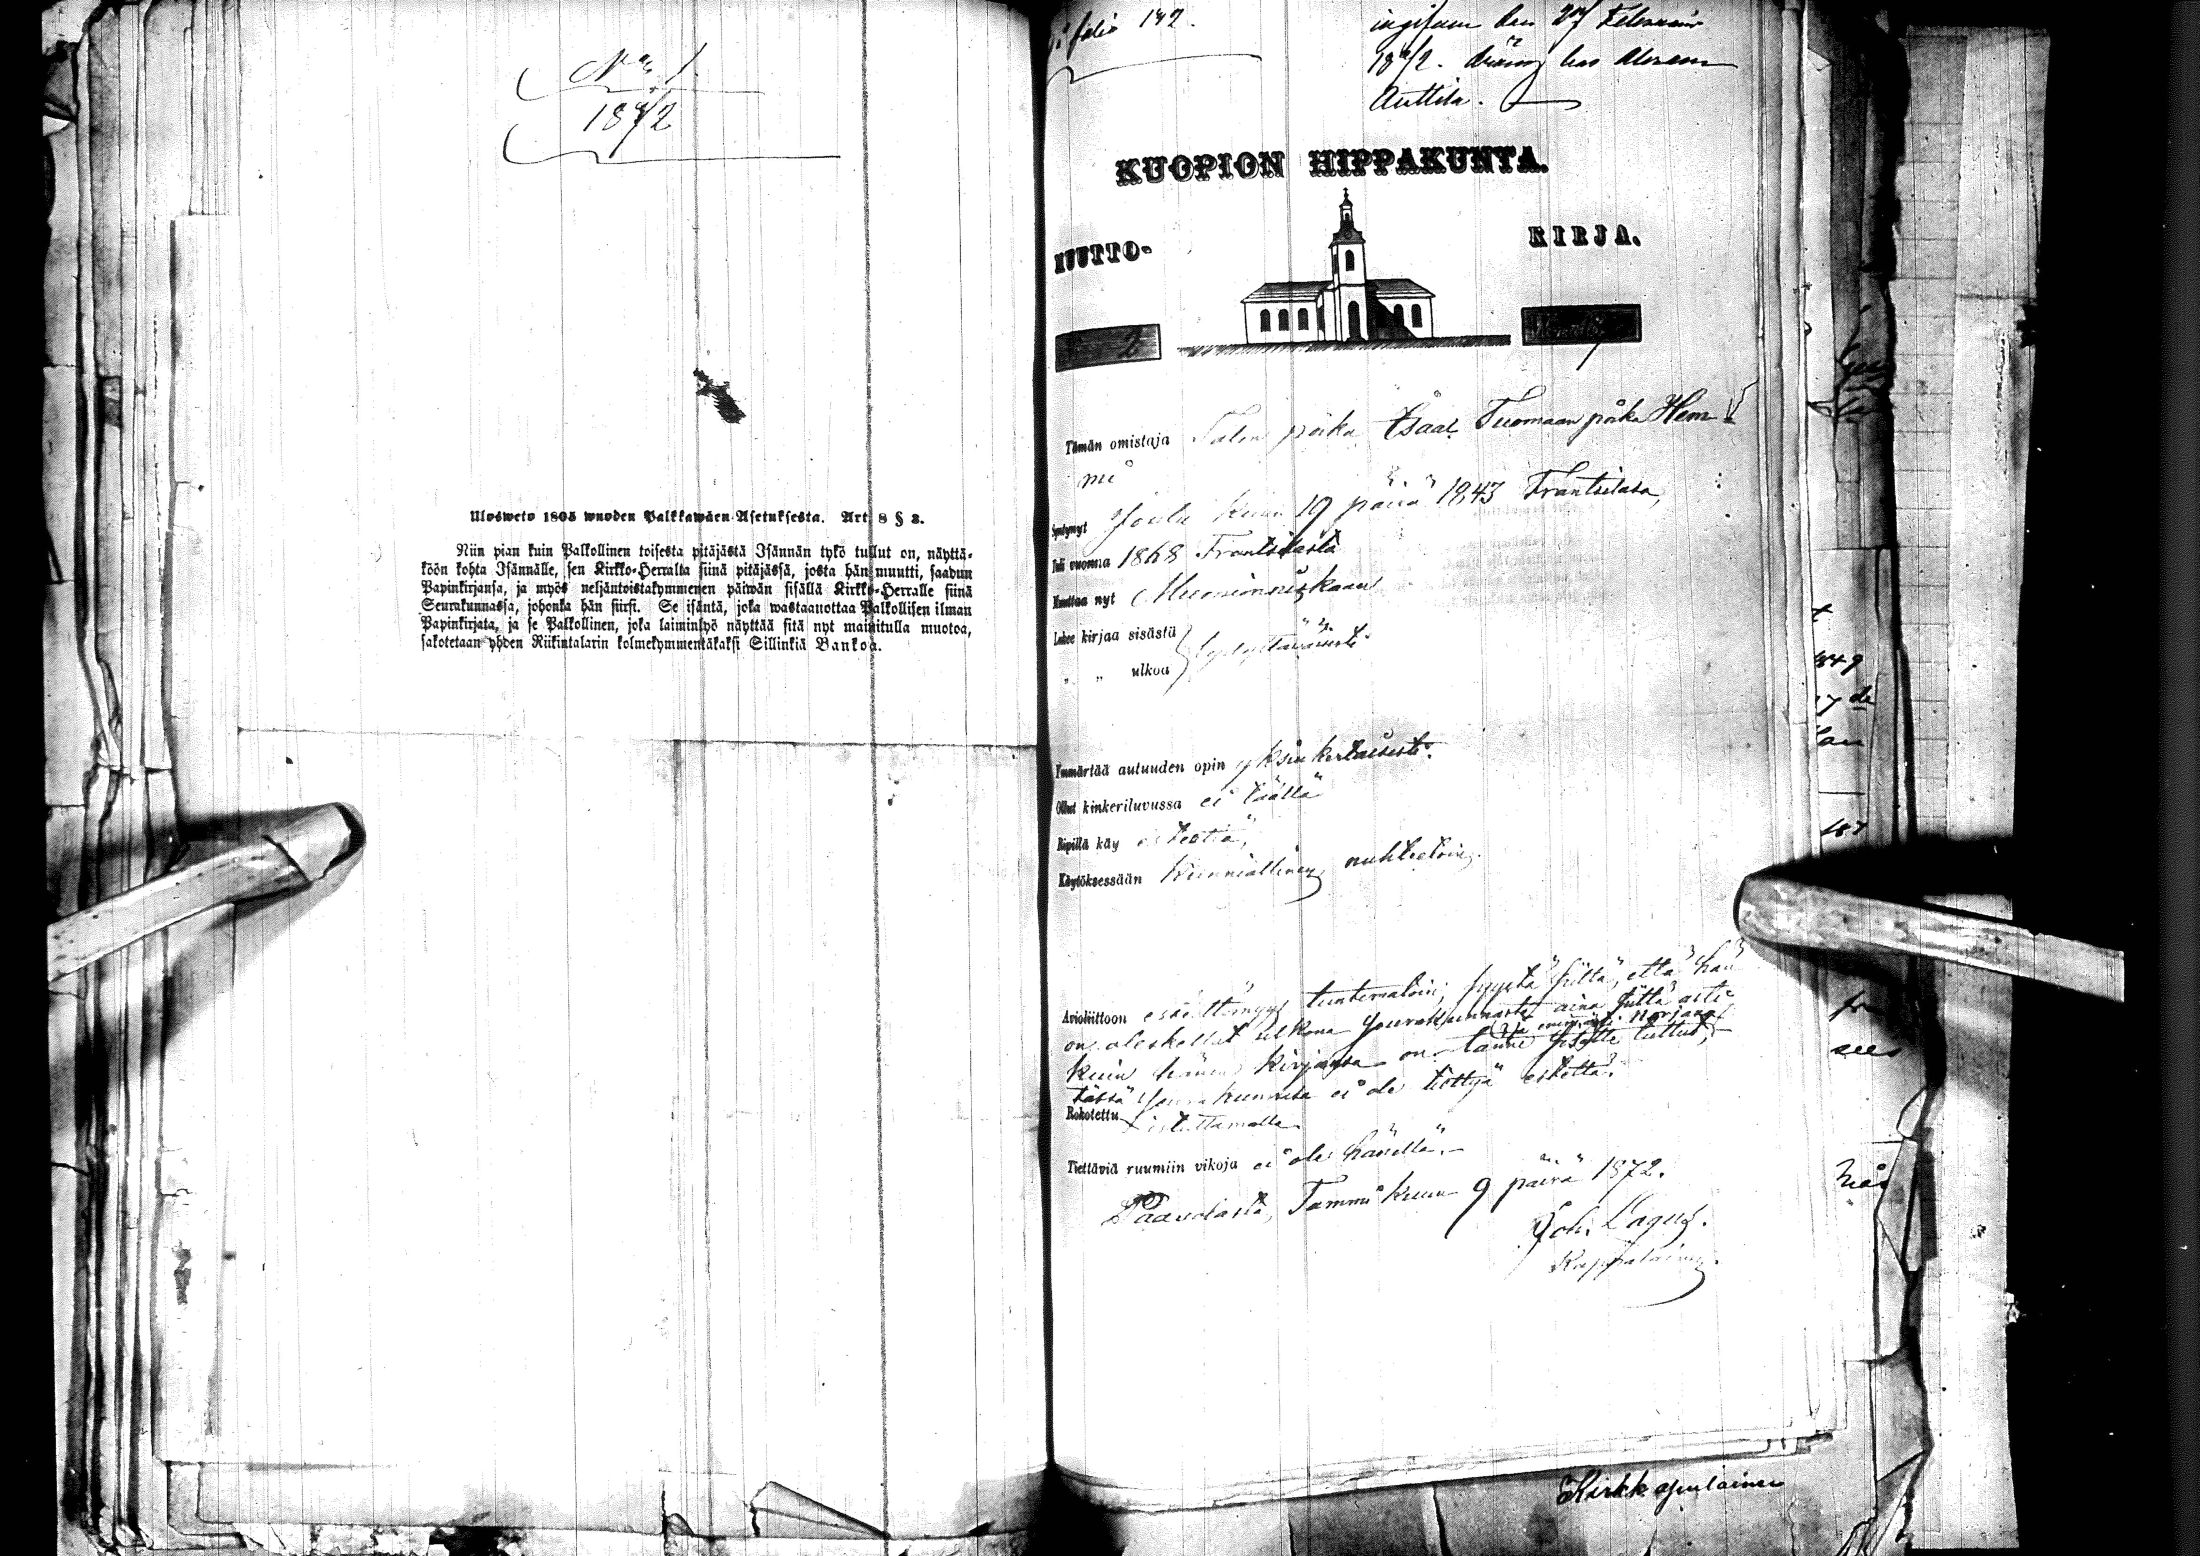 No 1.
1872
Ulosweto 1805 wuoden Palkkawäen Asetuksesta. Art. 8 § 3.
Niin pian kuin Palkollinen toisesta pitäjästä Isännän tykö tullut on, näyttä-
köön kohta Isännälle, sen Kirkko-Herralta siinä pitäjässä, josta hän muutti, saadun
Papinkirjansa, ja myös neljäntoistakymmenen päiwän sisällä Kirkko-Herralle siinä
Seurakunnassa, johonka hän siirsi. Se isäntä, joka wastaanottaa Palkollisen ilman
Papinkirjata, ja se Palkollinen, joka laiminlyö näyttää sitä nyt mainitulla muotoa,
sakotetaan yhden Riikintalarin kolmekymmentäkaksi Sillinkiä Bankoa.
folio 142.
den 27 Februari
1872. dräng hos
Anttila.
KUOPION HIPPAKUNTA.
MUUTTO- KIRJA.
2
Tämän omistaja Talon poika Isaac Tuomaan poika Hem-
mi
Syntynyt Joulu kuun 19 päiwä 1843 Frantsilasa,
Tuli vuonna 1868 Frantsilasta
Muuttaa nyt Muonionniskaan
Lukee kirjaa sisästä
" " ulkoa tyydyttäväisesti.
Ymmärtää autuuden opin yksinkertaisesti.
Ollut kinkeriluvussa ei täällä
Ripillä käy ei tietä,
Käytöksessään kunniallinen, nuhteetoin.
Avioliittoon esteettömyys tuntematoin, syystä siitä, että hän
on oleskellut ulkona seurakunnasta aina siitä asti
kuin hänen kirjansa on tänne sisälle tullut,
tässä seurakunnasa ei ole tiettyä estettä.
Rokotettu istuttamalla.
Tiettäviä ruumiin vikoja ei ole hänellä.
Paavolasta, Tammikuun 9 päiwä 1872.
Joh. Lagus.
Kappalainen.
Kirkkoherralainen